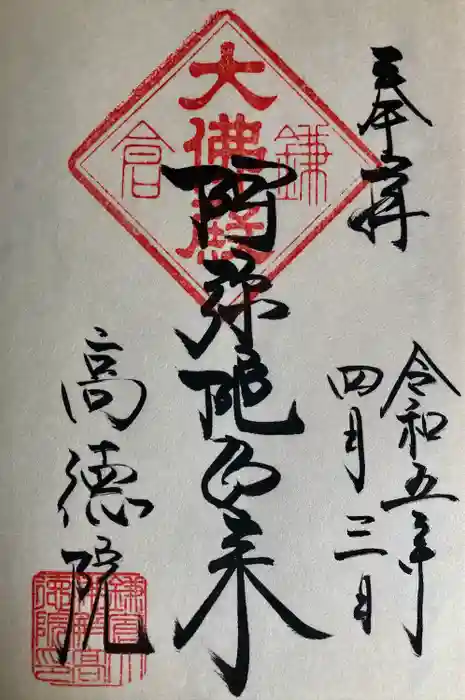 奉拝
令和五年
四月三日
阿弥陀如来
大佛殿
鎌倉
高徳院